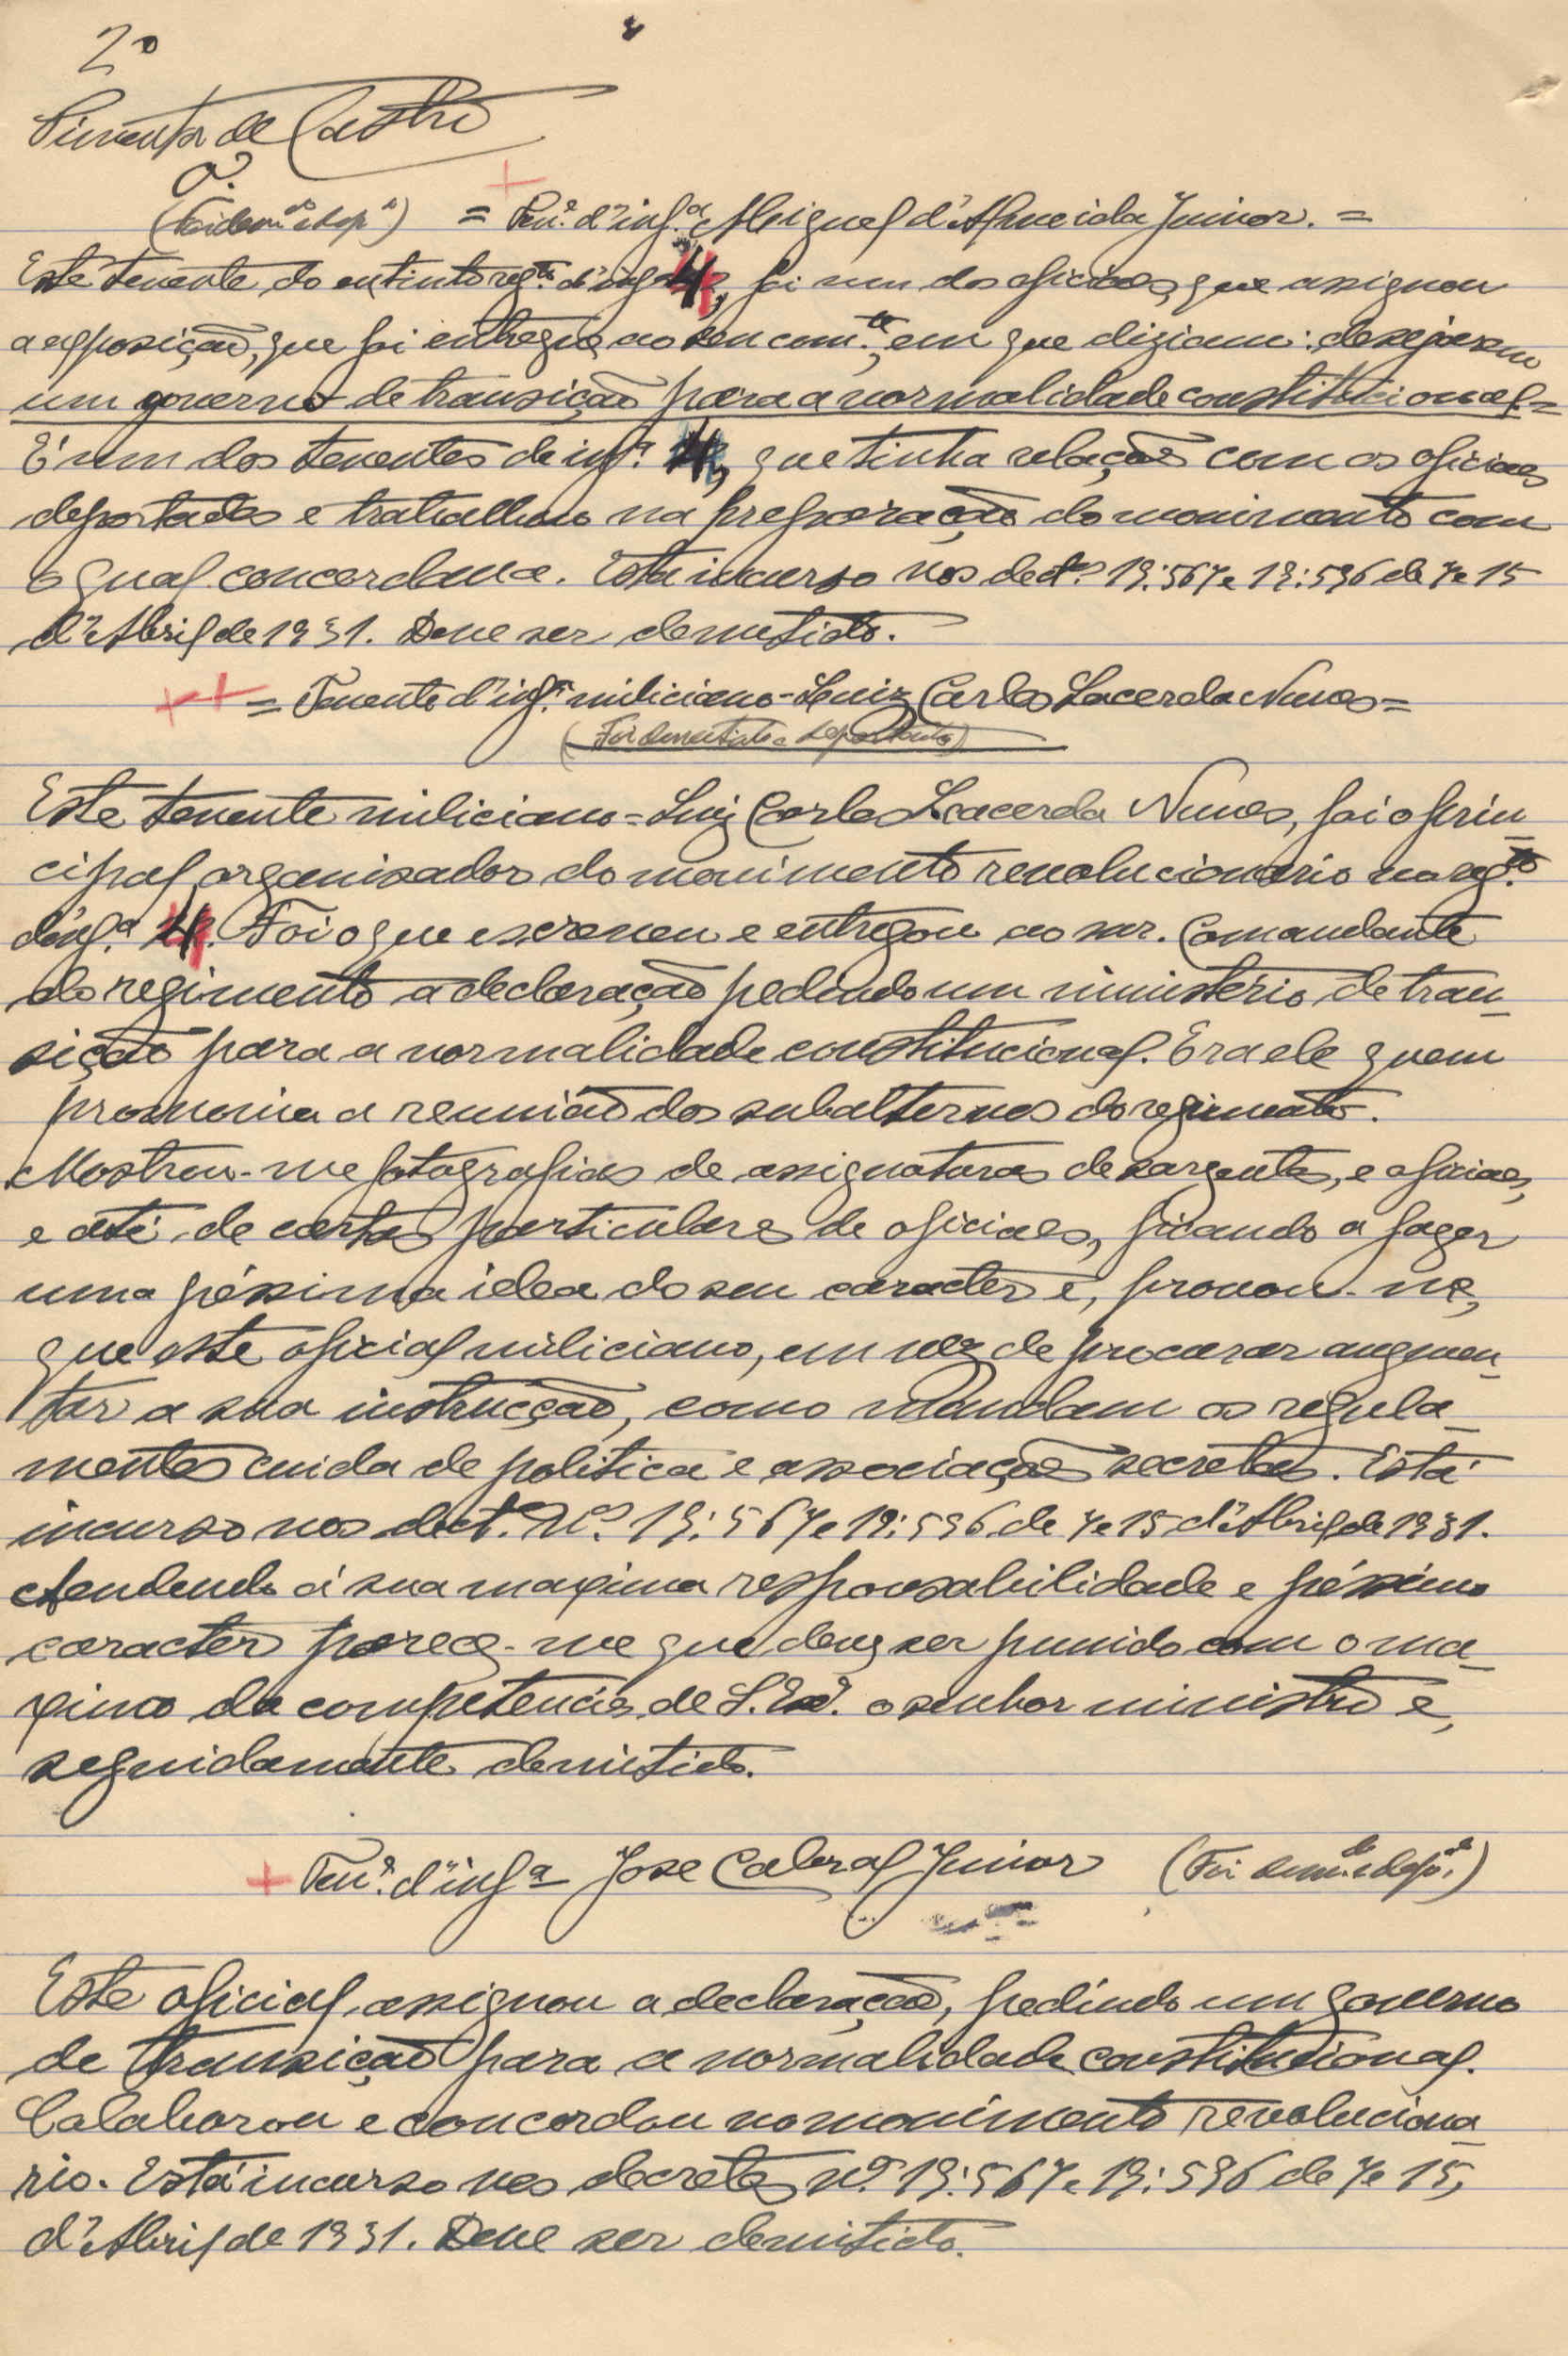 2º
Pimenta de Castro
(Foi dem.do e dep.do) = Ten.e d'inf.a Miguel d'Almeida Junior. =
Este tenente do extinto reg.to d'inf.a 4, foi um dos oficiaes, que assignou
a exposição, que foi entregue ao seu com.te, em que diziam: desejarem
um governo de transição para a normalidade constitucional. =
É um dos tenentes de inf.a 4, que tinha relações com os oficiaes
deportados e trabalhou na preparação do movimento com
o qual concordava. Está incurso nos dect.os 19:567 e 19:596 de 7 e 15
d'Abril de 1931. Deve ser demitido.
= Tenente d'inf.a miliciano - Luiz Carlos Lacerda Nunes =
(Foi demitido e deportado)
Este tenente miliciano = Luiz Carlos Lacerda Nunes, foi o prin-
cipal organisador do movimento revolucionario no reg.to
d'inf.a 4. Foi o que escreveu e entregou ao snr. Comandante
do regimento a declaração pedindo um ministério de tran-
sição para a normalidade constitucional. Era ele quem
promovia a reunião dos subalternos do regimento.
Mostrou-me fotografias de assignaturas de sargentos, e oficiaes,
e até de cartas particulares de oficiaes, ficando a fazer
uma péssima idea do seu caracter e, provou-me,
que este oficial miliciano, em vez de procurar augmen-
tar a sua instrucção, como mandam os regula-
mentos cuida de politica e associações secretas. Está
incurso nos dect.os N.os 19:567 e 19:596 de 7 e 15 d'Abril de 1931.
Atendendo á sua maxima responsabilidade e péssimo
caracter parece-me que deve ser punido com o ma-
ximo da competencia de S. Ex.a o senhor ministro e,
seguidamente demitido.
Ten.e d'inf.a José Cabral Junior (Foi dem.do e dep.do)
Este oficial assignou a declaração, pedindo um governo
de transição para a normalidade constitucional.
Calaborou e concordou no movimento revoluciona-
rio. Está incurso nos decretos n.os 19:567 e 19:596 de 7 e 15,
d'Abril de 1931. Deve ser demitido.